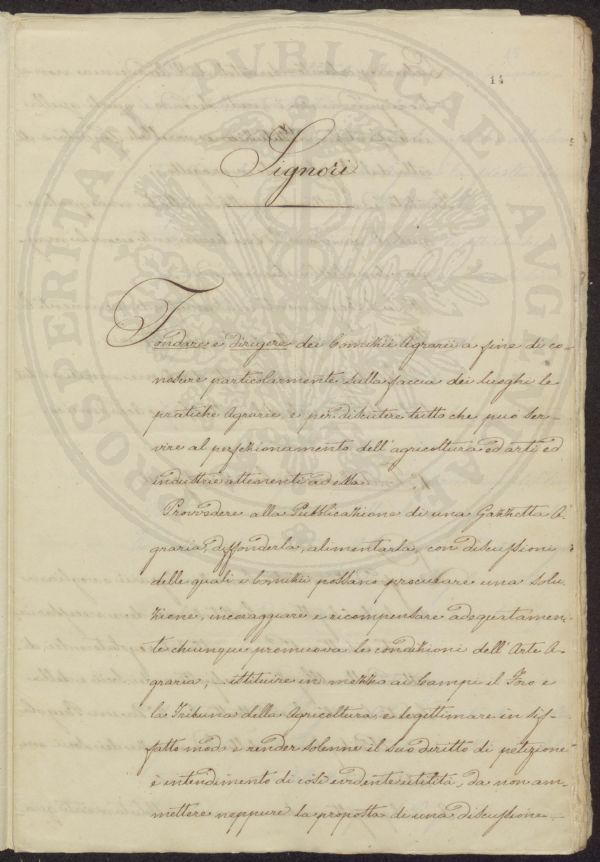 14
Signori
Fondare e dirigere dei Comitii Agrarii a fine di co-
noscere particolarmente sulla faccia dei luoghi le
pratiche Agrarie, e per discutere tutto che può ser-
vire al perfezionamento dell'agricoltura ed arti ed
industrie attenenti ad essa.
Provvedere alla Pubblicazione di una Gazzetta A-
graria, diffonderla, alimentarla, con discussioni
delle quali i Comizii possano procurare una solu-
zione, incoraggiare e ricompensare adeguatamen-
te chiunque promuova le condizioni dell'Arte A-
graria, istituire in mezzo ai Campi il Foro e
la Tribuna della Agricoltura, e legittimare in sif-
fatto modo e render solenne il suo diritto di petizione
è intendimento di così evidente utilità, da non am-
mettere neppure la proposta di una discussione
PROSPERITATI PVBLICAE AVGENDAE